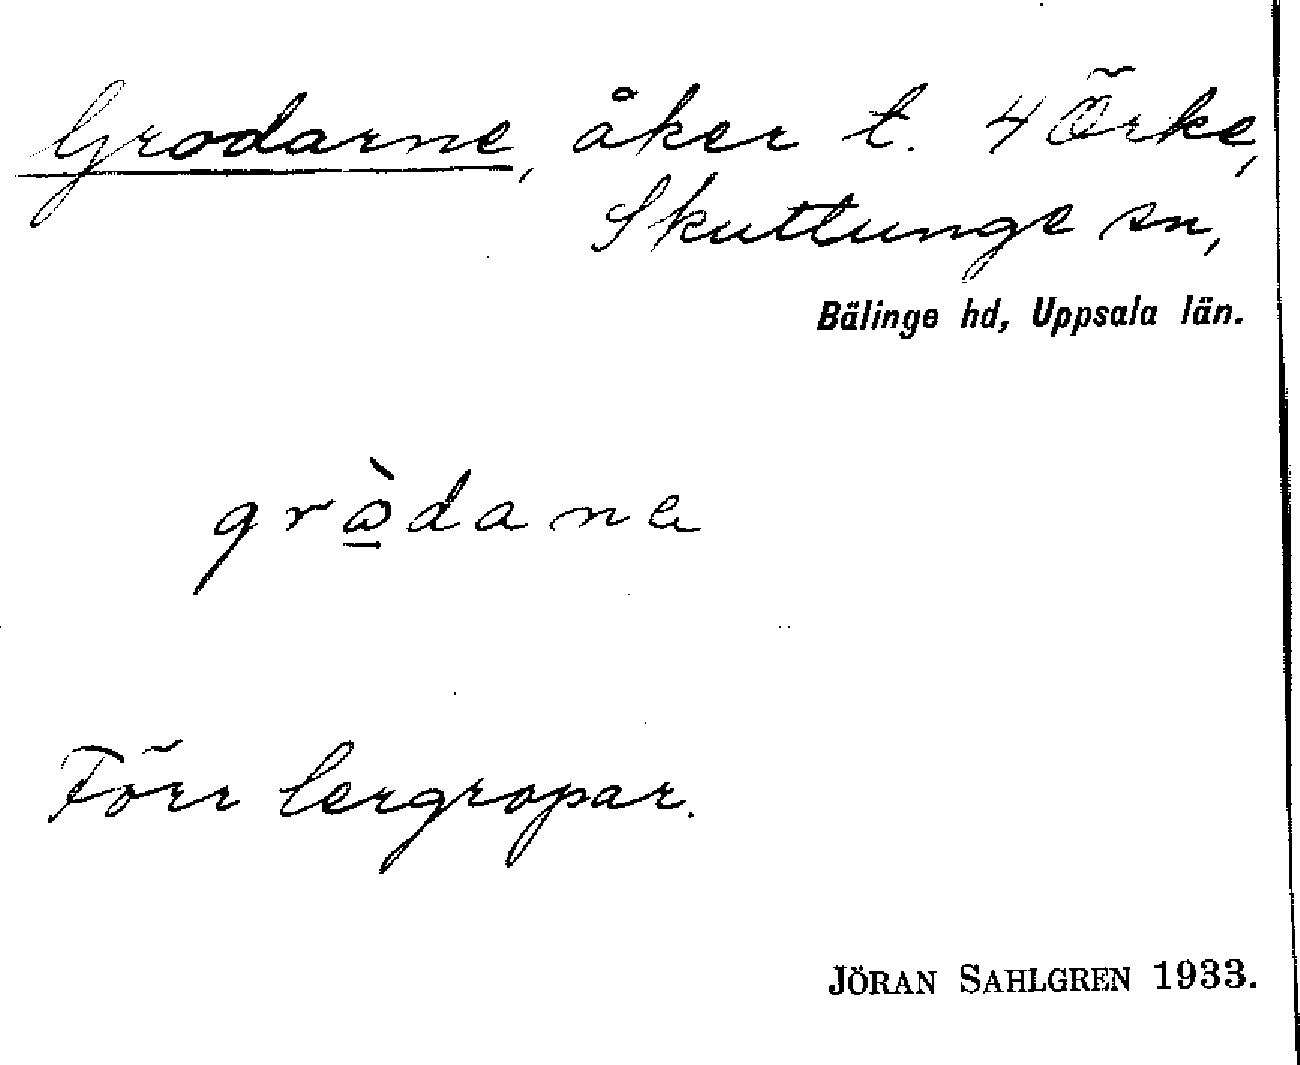 Grodarne, åker t. 4 Örke,
Skuttunge sn,
Bälinge hd, Uppsala län.
grὼdana
Förr lergropar.
JÖRAN SAHLGREN 1933.